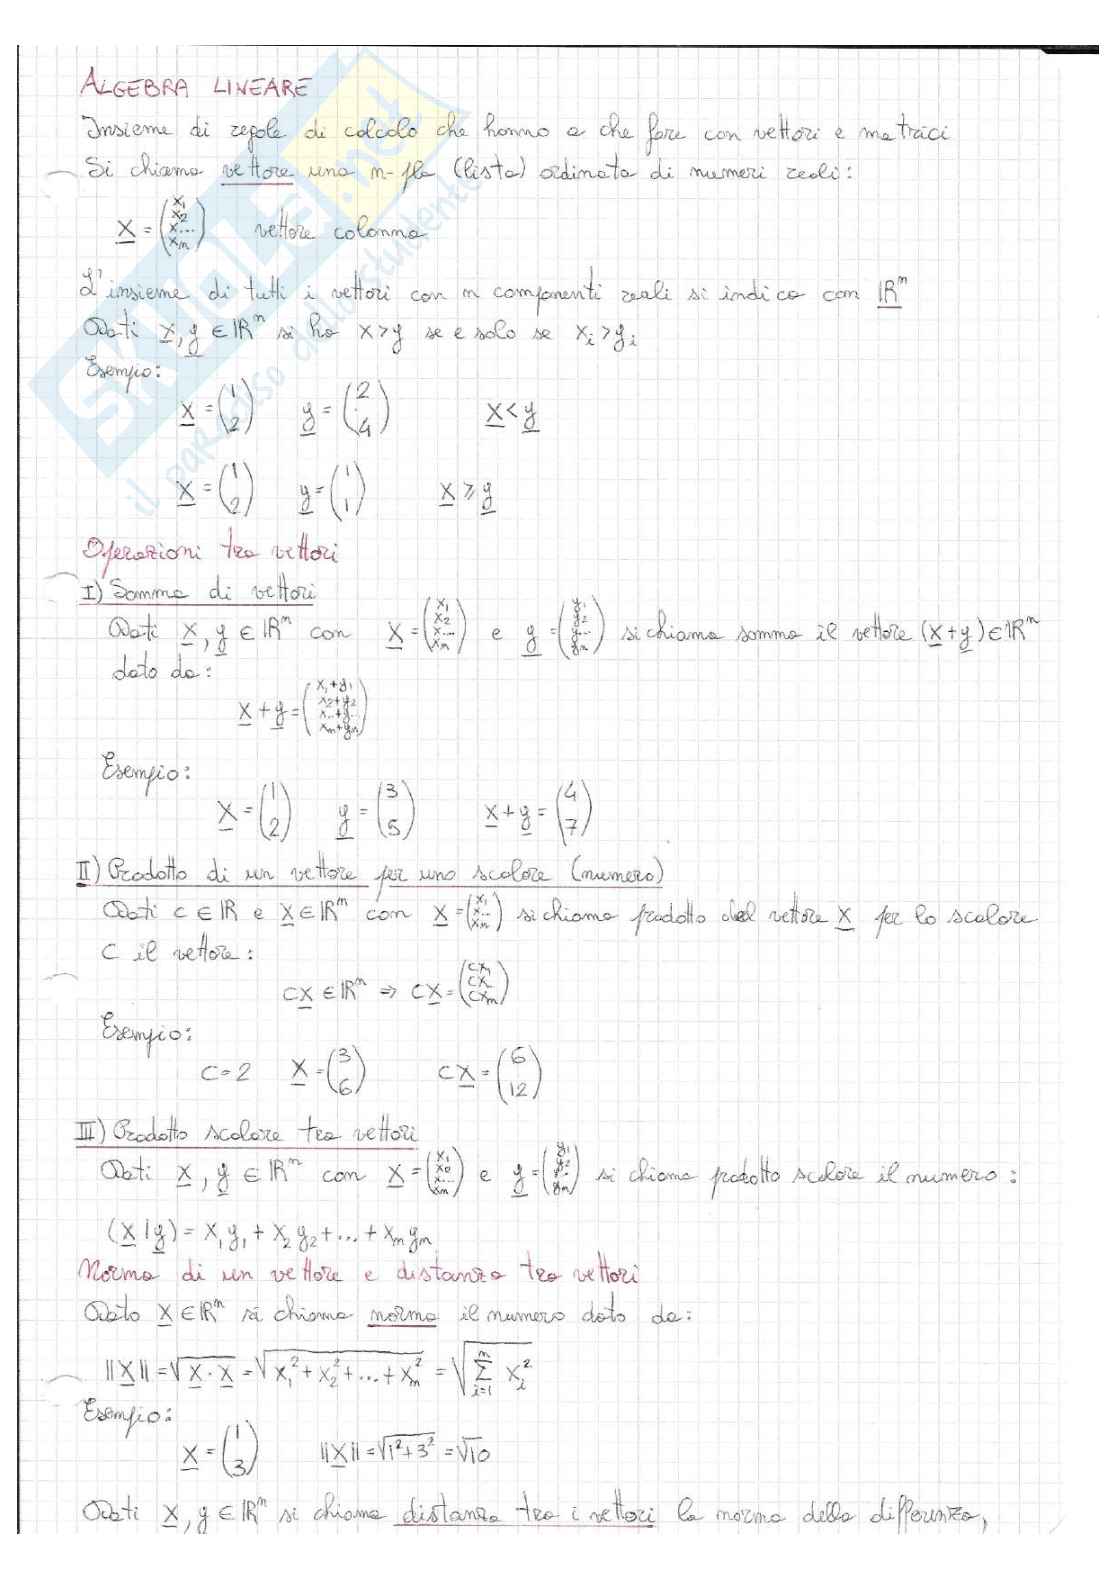 ALGEBRA LINEARE
Insieme di regole di calcolo che hanno a che fare con vettori e matrici
Si chiama vettore una n-pla (lista) ordinata di numeri reali:
x = (x₁ x₂ x... xₙ) vettore colonna
L'insieme di tutti i vettori con n componenti reali si indica con ℝⁿ
Dati x, y ∈ ℝⁿ si ha x>y se e solo se xᵢ>yᵢ
Esempio:
x = (1 2) y = (2 4) x<y
x = (1 2) y = (1 1) x ⩾ y
Operazioni tra vettori
I) Somma di vettori
Dati x, y ∈ ℝⁿ con x = (x₁ x₂ x... xₙ) e y = (y₁ y₂ y... yₙ) si chiama somma il vettore (x+y) ∈ ℝⁿ
dato da:
x + y = (x₁+y₁ x₂+y₂ x...+y... xₙ+yₙ)
Esempio:
x = (1 2) y = (3 5) x+y = (4 7)
II) Prodotto di un vettore per uno scalare (numero)
Dati c ∈ ℝ e x ∈ ℝⁿ con x = (x₁ x... xₙ) si chiama prodotto del vettore x per lo scalare
c il vettore:
cx ∈ ℝⁿ ⇒ cx = (cx₁ cx cxₙ)
Esempio:
c=2 x = (3 6) cx = (6 12)
III) Prodotto scalare tra vettori
Dati x, y ∈ ℝⁿ con x = (x₁ x₂ x... xₙ) e y = (y₁ y₂ y... yₙ) si chiama prodotto scalare il numero:
(x|y) = x₁y₁ + x₂y₂ + ... + xₙyₙ
Norma di un vettore e distanza tra vettori
Dato x ∈ ℝⁿ si chiama norma il numero dato da:
||x|| = √(x · x) = √(x₁² + x₂² + ... + xₙ²) = √(∑ᵢ₌₁ⁿ xᵢ²)
Esempio:
x = (1 3) ||x|| = √(1²+3²) = √10
Dati x, y ∈ ℝⁿ si chiama distanza tra i vettori la norma della differenza,
SKUOLA.net
il paradiso dello studente